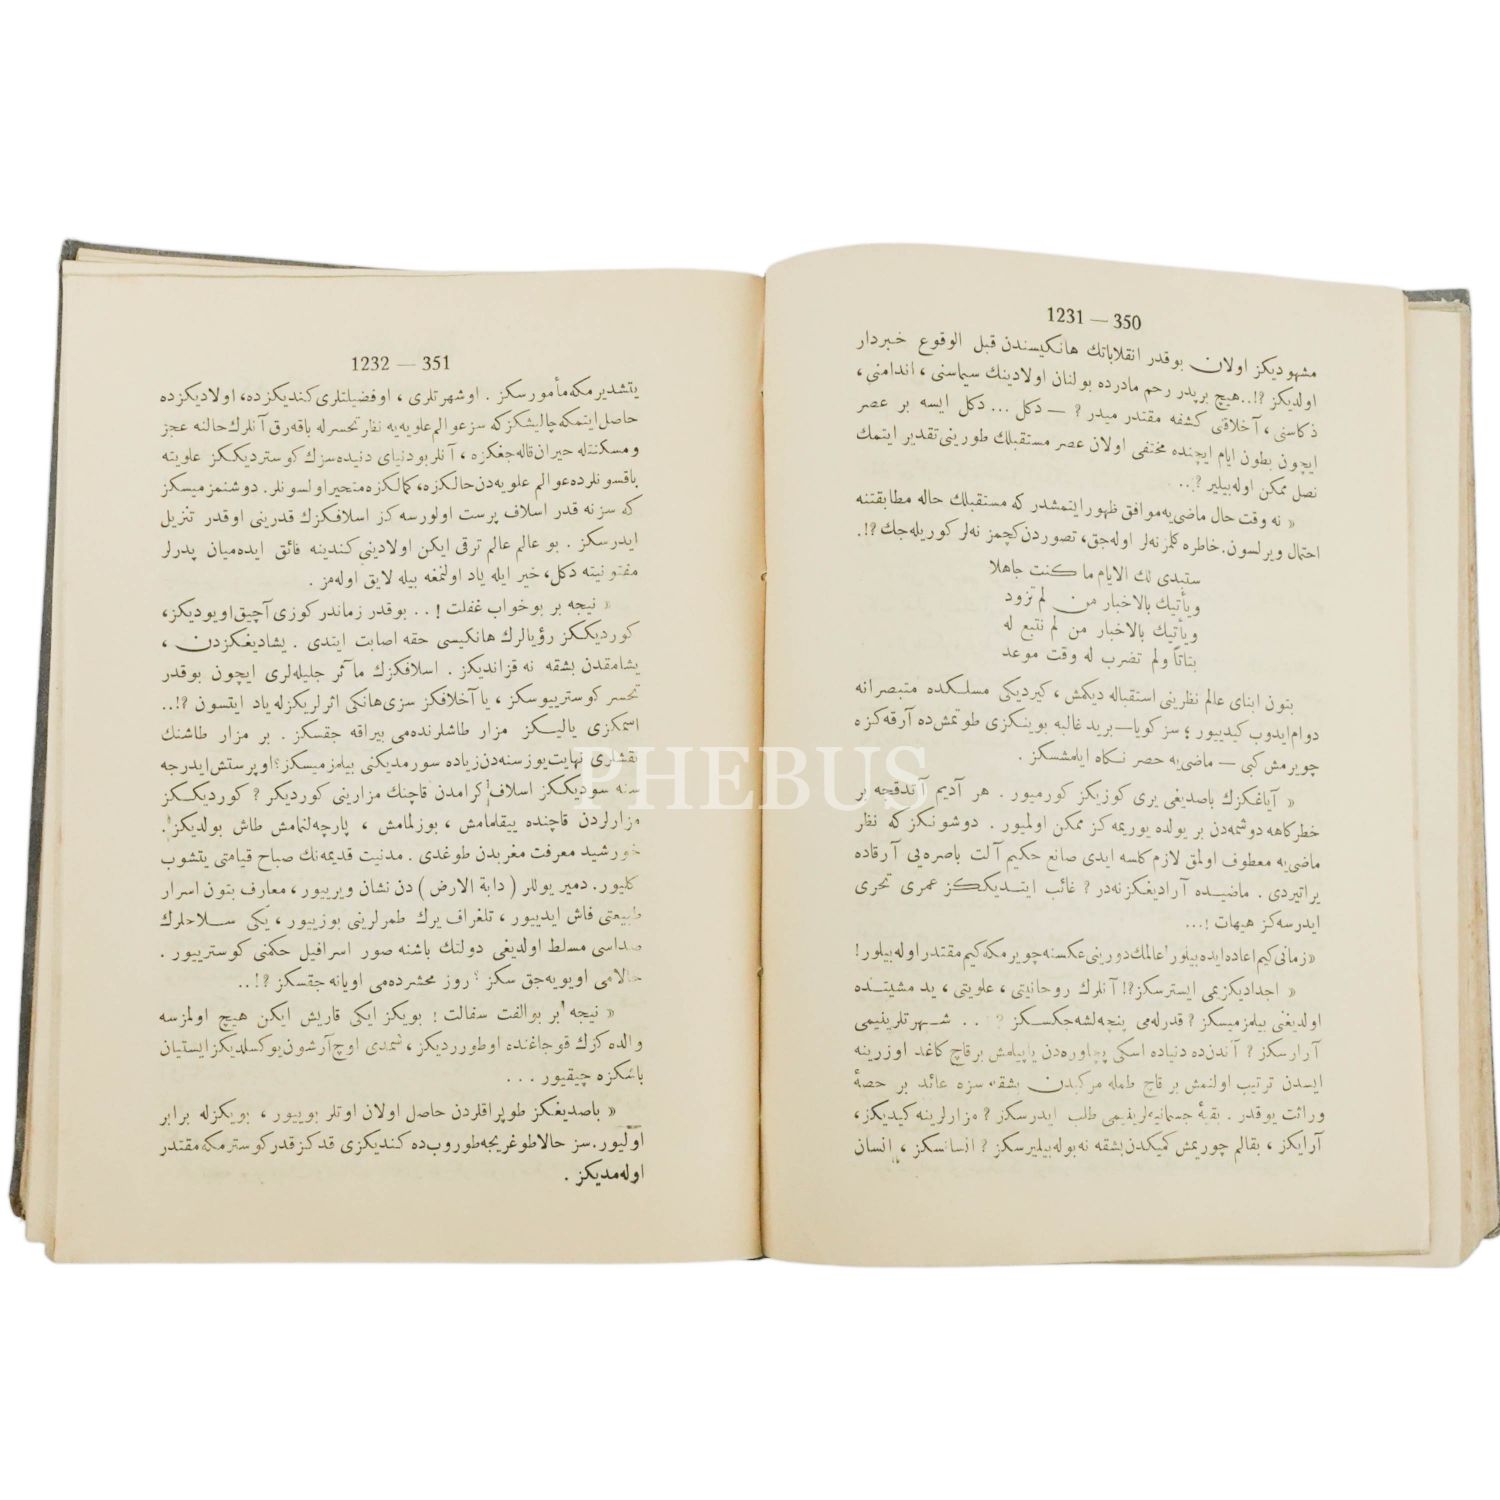 1231 — 350
مشهودیكز اولان بوقدر انقلاباتك هانكیسندن قبل الوقوع خبردار
اولدیكز ؟!..هیچ برپدر رحم مادرده بولنان اولادینك سیماسنی ، اندامنی ،
ذكاسنی ، آخلاقی كشفه مقتدر میدر ؟ — دكل ... دكل ایسه بر عصر
ایچون بطون ایام ایچنده مختفی اولان عصر مستقبلك طورینی تقدیر ایتمك
نصل ممكن اوله‌بیلیر ؟ ..
« نه وقت حال ماضی‌یه موافق ظهور ایتمشدر كه مستقبلك حاله مطابقتنه
احتمال ویرلسون. خاطره كلمز نه‌لر اوله‌جق، تصوردن كچمز نه‌لر كوریله‌جك ؟!.
ستبدی لك الایام ما كنت جاهلا
ویأتیك بالاخبار من لم تزود
ویأتیك بالاخبار من لم نتبع له
بتاتاً ولم تضرب له وقت موعد
بتون ابنای عالم نظرینی استقباله دیكمش ، كیردیكی مسلكده متبصرانه
دوام ایدوب كیدییور ؛ سز كویا — برید غالبه بوینكزی طوتمش ده آرقه‌كزه
چویرمش كبی — ماضی‌یه حصر نكاه ایله‌مشسكز .
« آیاغكزك باصدیغی یری كوزیكز كورمیور . هر آدیم آتدقجه بر
خطركاهه دوشمه‌دن بر یولده یوریمه‌كز ممكن اولمیور . دوشونكز كه نظر
ماضی‌یه معطوف اولمق لازم كلسه ایدی صانع حكیم آلت باصره‌یی آرقاده
یراتیردی . ماضیده آرادیغكز نه‌در ؟ غائب ایتدیككز عمری تحری
ایدرسه‌كز هیهات !...
« زمانی كیم اعاده ایده‌بیلور! عالمك دورینی عكسنه چویرمكه كیم مقتدر اوله‌بیلور!
« اجدادیكزیمی ایسترسكز؟! آنلرك روحانیتی ، علویتی ، ید مشیتده
اولدیغنی بیلمزمیسكز ؟ قدرله‌می پنچه‌لشه‌جكسكز ؟ . . شهرتلرینیمی
آرارسكز ؟ آندن‌ده دنیاده اسكی پچاوره‌دن یاپیلمش بر قاچ كاغد اوزرینه
ایسدن ترتیب اولنمش بر قاچ طمله مركبدن بشقه سزه عائد بر حصهٔ
وراثت یوقدر . بقیهٔ جسمانیه‌لرینیمی طلب ایدرسكز ؟ مزارلرینه كیدیكز ،
آرایكز ، بقالم چوریمش كمیكدن بشقه نه بوله‌بیلیرسكز ؟ انسانسكز ، انسان
1232 — 351
یتشدیرمكه مأمورسكز . او شهرتلری ، او فضیلتلری كندیكزده ، اولادیكزده
حاصل ایتمكه چالیشكز كه سز عوالم علویه‌یه نظر تحسرله باقه‌رق آنلرك حالنه عجز
و مسكنتله حیران قاله‌جغكزه ، آنلر بو دنیای دنیده سزك كوستردیككز علویته
باقسونلرده عوالم علویه‌دن حالكزه ، كمالكزه متحیر اولسونلر . دوشنمزمیسكز
كه سز نه قدر اسلاف پرست اولورسه‌كز اسلافكزك قدرینی او قدر تنزیل
ایدرسكز . بو عالم عالم ترقی ایكن اولادینی كندینه فائق ایده‌میان پدرلر
مفتونیته دكل ، خیر ایله یاد اولنمغه بیله لایق اوله‌مز .
« نیجه بر بو خواب غفلت ! . . بوقدر زماندر كوزی آچیق اویودیكز ،
كوردیككز رؤیالرك هانكیسی حقه اصابت ایتدی . یشادیغكزدن ،
یشامقدن بشقه نه قزاندیكز . اسلافكزك مآثر جلیله‌لری ایچون بوقدر
تحسر كوسترییوسكز ، یا آخلافكز سزی هانكی اثرلریكزله یاد ایتسون ؟!..
اسمكزی یالیكز مزار طاشلرنده‌می بیراقه جقسكز . بر مزار طاشنك
نقشلری نهایت یوز سنه‌دن زیاده سورمدیكنی بیلمزمیسكز ؟ او پرستش ایدرجه
سنه سودیككز اسلاف كرامدن قاچنك مزارینی كوردیكز ؟ كوردیككز
مزارلردن قاچنده ییقلمامش ، بوزلمامش ، پارچه‌لنمامش طاش بولدیكز !.
خورشید معرفت مغربدن طوغدی . مدنیت قدیمه‌نك صباح قیامتی یتشوب
كلیور . دمیر یوللر ( دابة الارض ) دن نشان ویرییور ، معارف بتون اسرار
طبیعتی فاش ایدییور ، تلغراف یرك طمرلرینی بوزییور ، یكی سلاحلرك
صداسی مسلط اولدیغی دولتك باشنه صور اسرافیل حكمنی كوسترییور .
حالامی اویویه‌جق سكز ؟ روز محشرده‌می اویانه جقسكز ؟!..
« نیجه بر بو الفت سفالت ! بویكز ایكی قاریش ایكن هیچ اولمزسه
والده كزك قوجاغنده اوطوردیكز ، شمدی اوچ آرشون یوكسلدیكز ایستیان
باشكزه چیقیور . . .
« باصدیغكز طوپراقلردن حاصل اولان اوتلر بویییور ، بویكزله برابر
اولیور. سز حالا طوغریجه طوروب ده كندیكزی قدكز قدر كوسترمكه مقتدر
اوله‌مدیكز .
PHEBUS